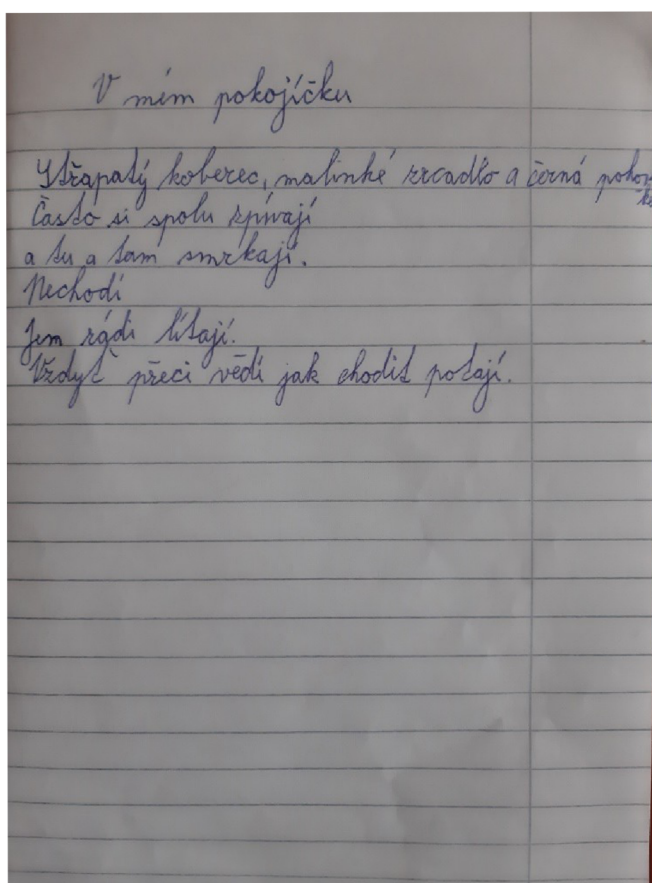 V mém pokojíčku
Střapatý koberec, malinké zrcadlo a černá pohov
ka
Často si spolu zpívají
a tu a tam smrkají.
Nechodí
Jem rádi lítají.
Vždyť přeci vědí jak chodit potají.